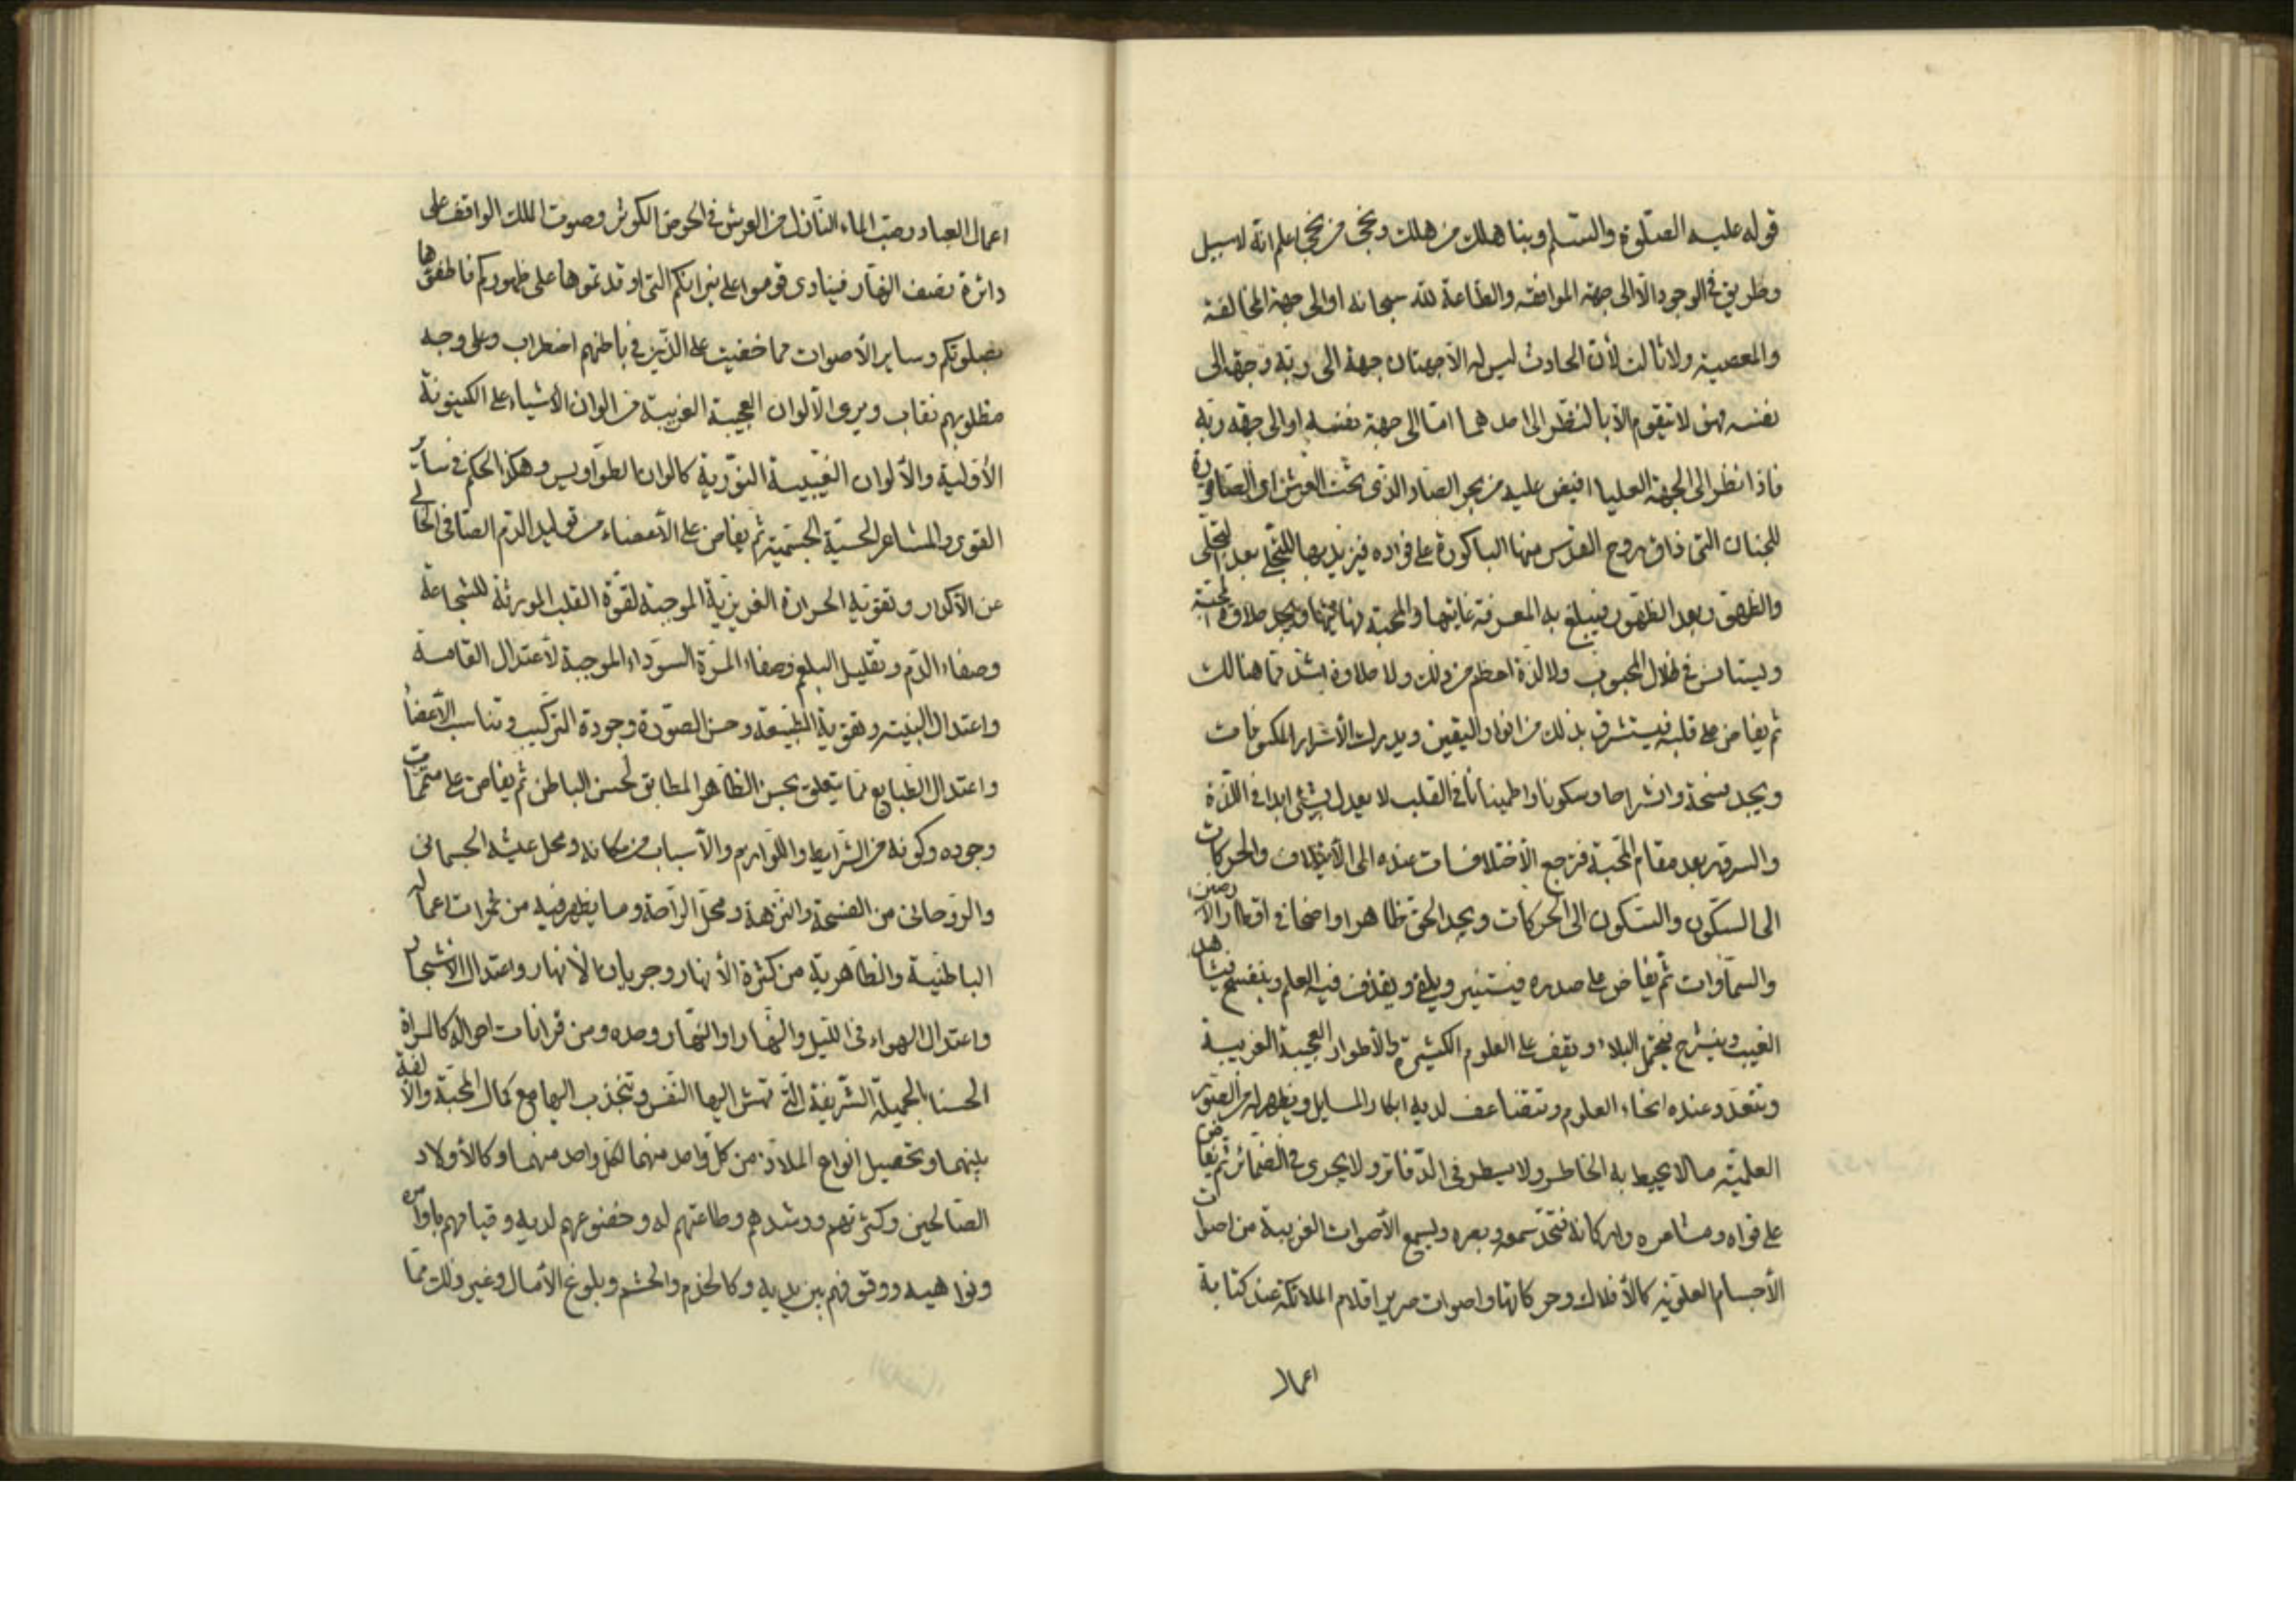 قوله عليه الصلوة والسلم وبنا هلك من هلك ونجى من نجى اعلم انه لا سبيل
وطريق في الوجود الا الى جهة الموافقة والطاعة لله سبحانه او الى جهة المخالفة
والمعصية ولا ثالث لأن الحادث ليس له الا جهتان جهة الى ربه وجهة الى
نفسه فهو لا يتقوم الا بالنظر الى احدهما اما الى جهة نفسه او الى جهة ربه
فاذا نظر الى الجهة العليا افيض عليه من بحر الصاد الذي تحت العرش او الصاقورة
للجنان التي ذاق روح القدس منها الباكورة على فؤاده فيزيد بها التجلى بعد التجلى
والظهور بعد الظهور فيبلغ به المعرفة غايتها والمحبة نهايتها ويجد حلاوة المحبة
ويستانس في ظلال المحبوب ولا لذة اعظم من ذلك ولا حلاوة اشد مما هنالك
ثم يفاض على قلبه فيستشرق بذلك من انوار اليقين ويدرك الأسرار المكنونات
ويجد فسحة وانشراحا وسكونا واطمينانا في القلب لا يعدل بشئ ابدا في اللذة
والسرور بعد مقام المحبة فترجع الأختلافات عنده الى الأيتلاف والحركات
الى السكون والسكون الى الحركات ويجد الحق ظاهرا واضحا في اقطار الأرضين
والسماوات ثم يفاض على صدره فيستنير ويقذف فيه العلم وينفسح فيشاهد
الغيب وينشرح فيحتمل البلاء ويقف على العلوم الكثيرة والأطوار العجيبة الغريبة
وتتعدد عنده انحاء العلوم وتتضاعف لديه ابكار المسايل ويظهر له من الصور
العلمية ما لا يحيط به الخاطر ولا يسطر في الدفاتر ولا يجرى في الضمائر ثم يفاض
على قواه ومشاعره واركانه فتحتد سمعه وبصره ويسمع الأصوات الغريبة من اصوات
الأجسام العلوية كالأفلاك وحركاتها واصوات صرير اقلام الملائكة عند كتابة
اعمال
اعمال العباد وصب الماء النازل من العرش في الحوض الكوثر وصوت الملك الواقف على
دائرة نصف النهار فينادى قوموا على نيرانكم التي اوقدتموها على ظهوركم فاطفؤها
بصلوتكم وساير الأصوات مما خفيت على الذين في باطنهم اضطراب وعلى وجه
مطلوبهم نقاب ويرى الألوان العجيبة الغريبة من الوان الأشياء على الكينونة
الأولية والألوان الغيبية النورية كالوان الطواويس وهكذا الحكم في سائر
القوى والمشاعر الحسية الجسمية ثم يفاض على الأعضاء من توليد الدم الصافى الخالى
عن الأكدار وتقوية الحرارة الغريزية الموجبة لقوة القلب المورثة للشجاعة
وصفاء الدم وتقليل البلغم وصفاء المرة السوداء الموجبة لأعتدال القامة
واعتدال البنية وتقوية الطبيعة وحسن الصورة وجودة التركيب وتناسب الأعضاء
واعتدال الطبايع مما يتعلق بحسن الظاهر المطابق لحسن الباطن ثم يفاض على متممات
وجوده وكونه من الشرايط واللوازم والأسباب من مكانه ومحل عيشه الجسمانى
والروحانى من الفسحة والنزهة ومحل الراحة وما يظهر فيه من ثمرات اعماله
الباطنية والظاهرية من كثرة الأنهار وجريان الأنهار واعتدال الأشجار
واعتدال الهواء في الليل والنهار او النهار وحده ومن قرانات احواله كالمراة
الحسنا الجميلة الشريفة التي تهش اليها النفس وتنجذب اليها مع كمال المحبة والألفة
بينهما وتحصيل انواع الملاذ من كل واحد منهما لكل واحد منهما وكالأولاد
الصالحين وكثرتهم ورشدهم وطاعتهم له وخضوعهم لديه وقيامهم باوامره
ونواهيه ووقوفهم بين يديه وكالخدم والحشم وبلوغ الأمال وغير ذلك مما